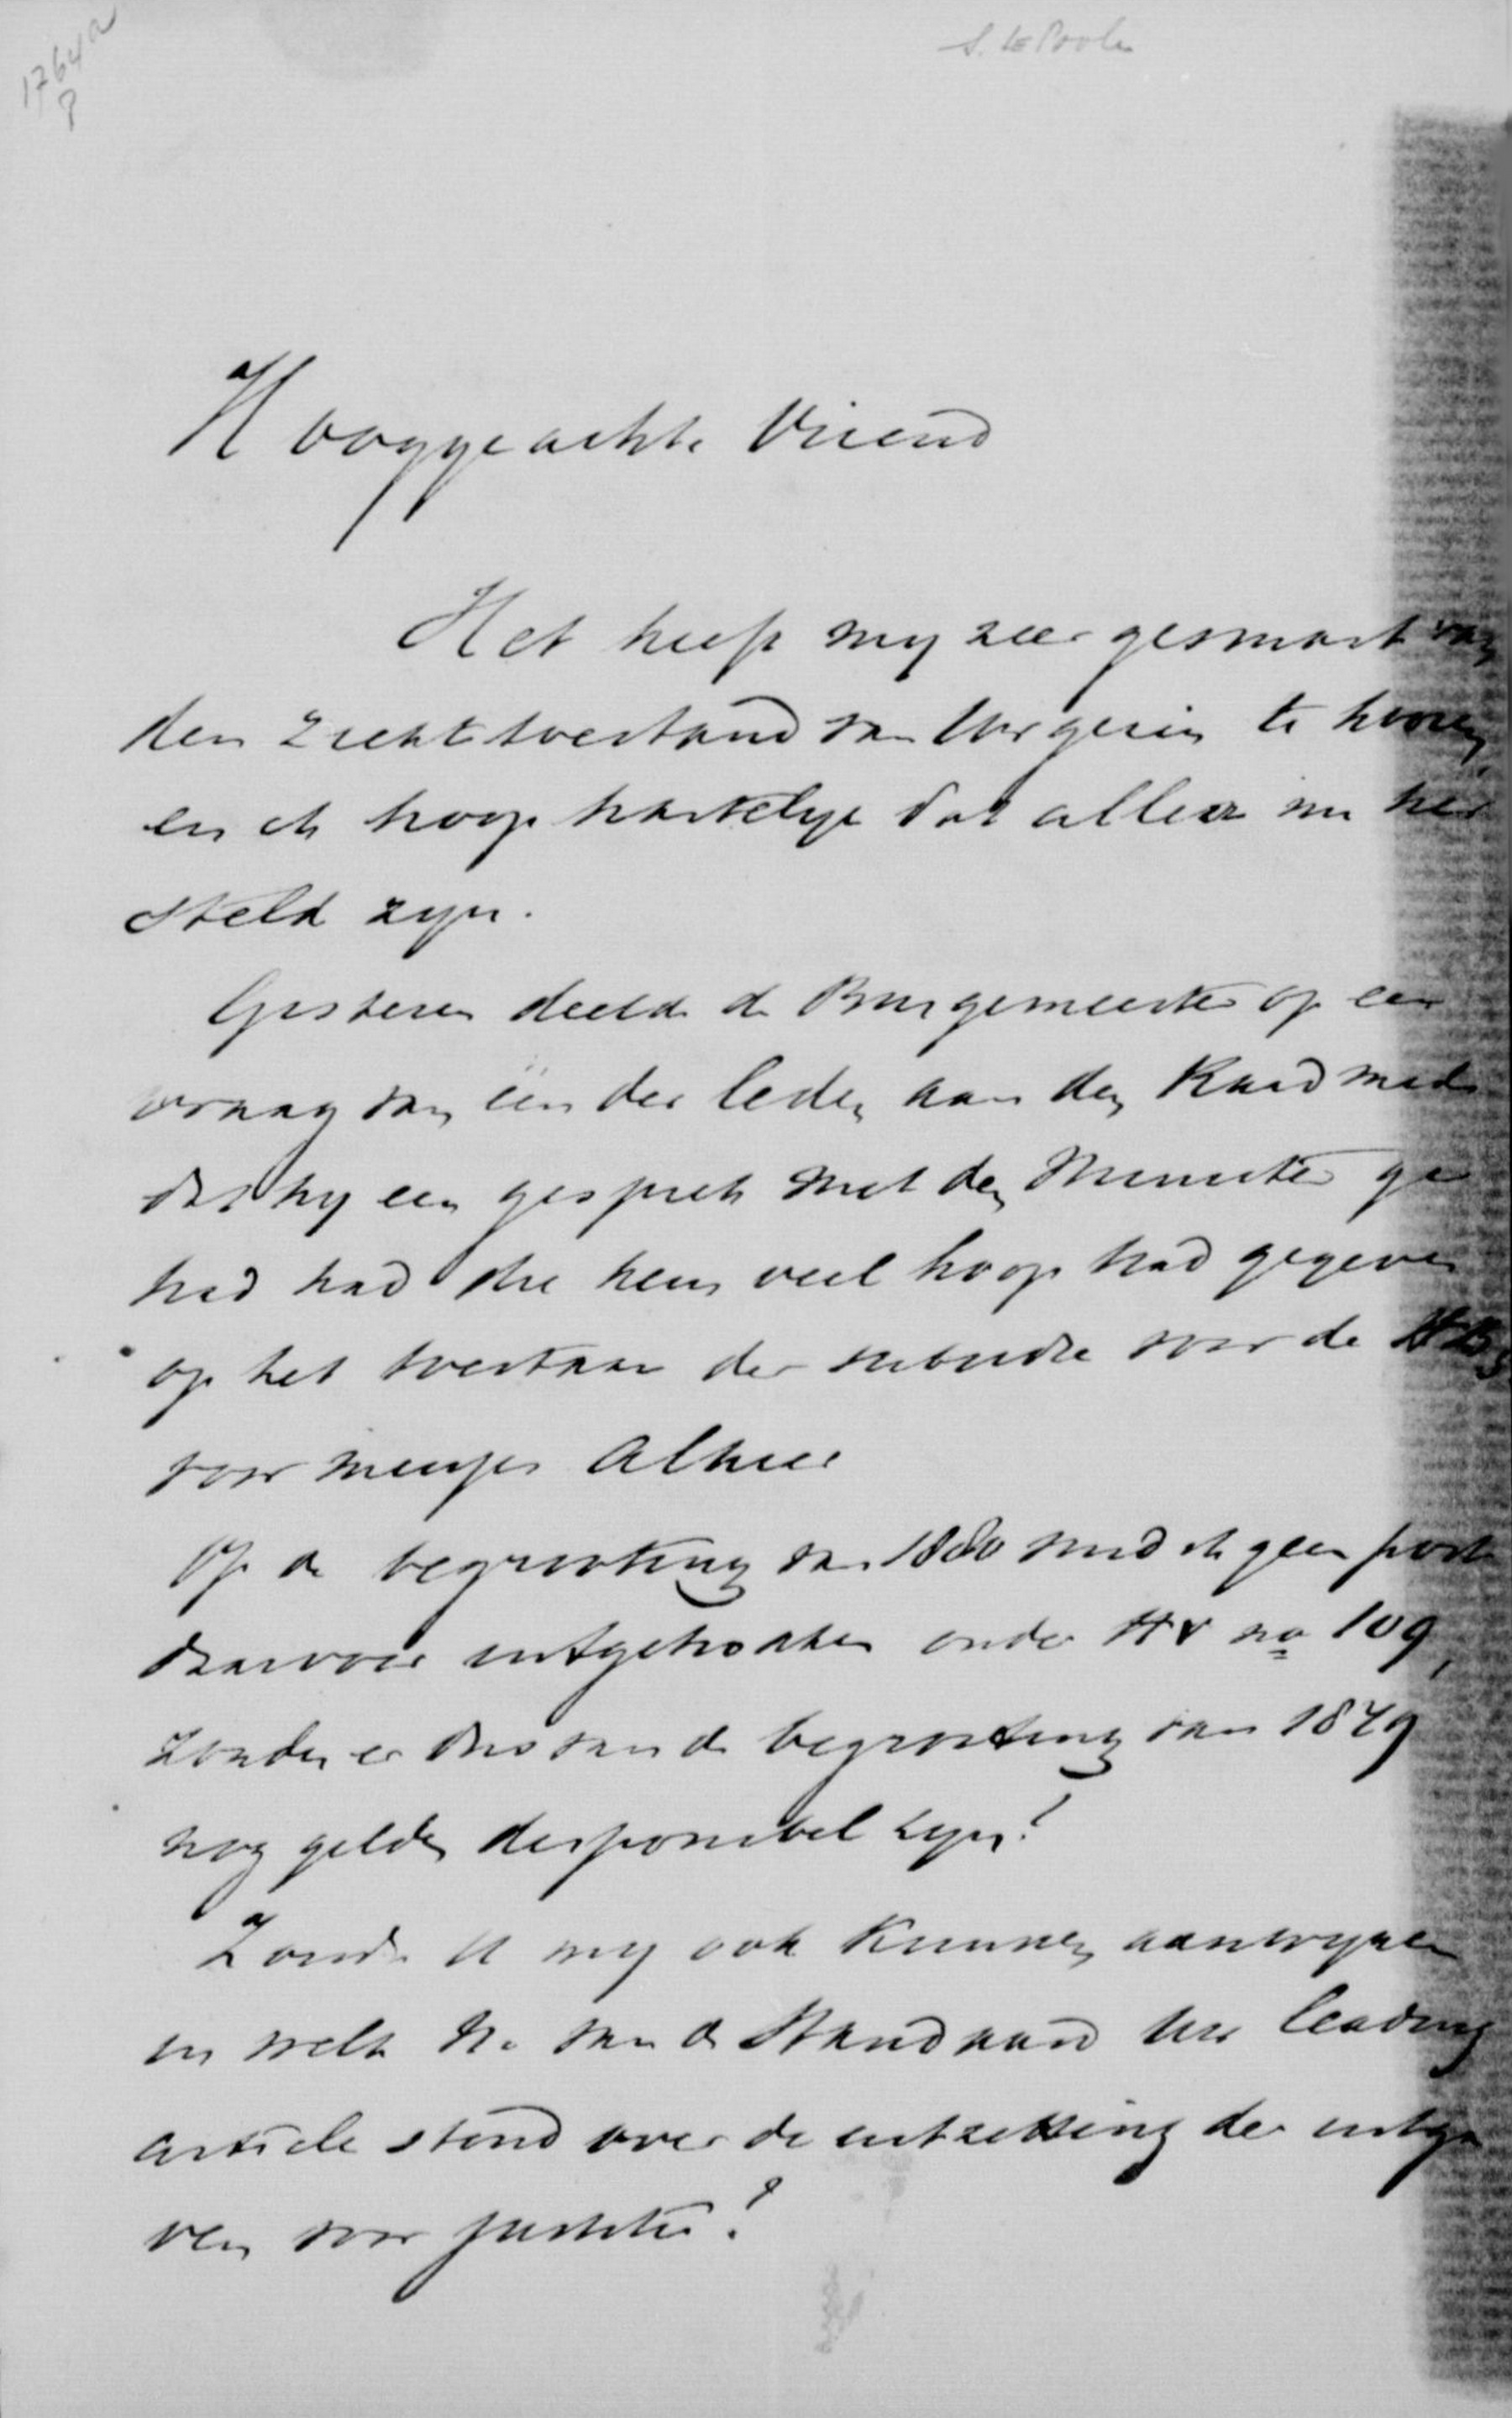 1764a
S. le Poole
Hooggeachte Vriend
Het heeft my zeer gesmart van
den ziektetoestand van Uw gezin te hooren
en ik hoop hartelyk dat allen nu her
steld zyn.
Gisteren deelde de Burgemeester op een
vraag van één der leden aan den Raad mede
dat hy een gesprek met den Minister ge
had had die hem veel hoop had gegeven
op het toestaan der subsidie voor de HBS
voor meisjes alhier
Op de begrooting van 1880 vind ik geen post
daarvoor uitgetrokken onder HV no 109,
zouden er dus van de begrooting van 1879
nog gelden disponibel zyn?
Zoudt U my ook kunnen aanwyzen
in welk No van de Standaard Uw leading
article stond over de uitzetting der uitga
ven voor justitie?